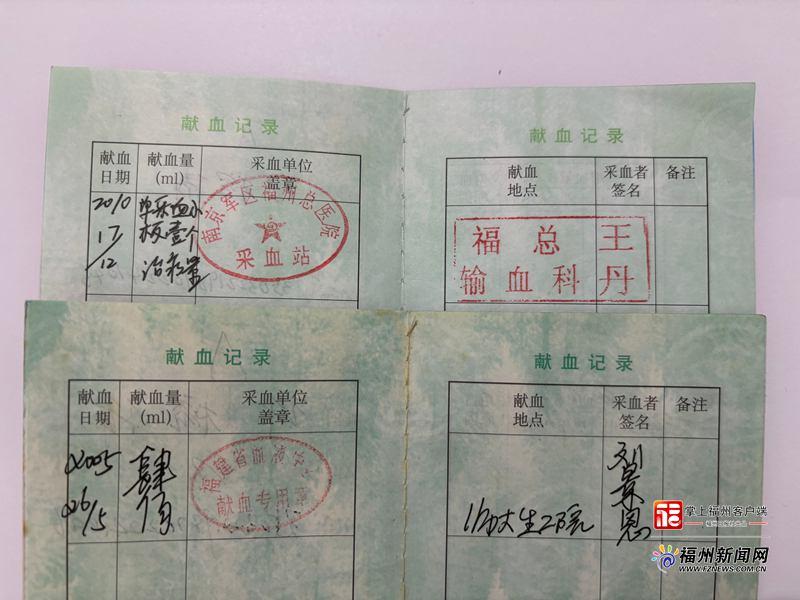 献血记录
献血日期 献血量(ml) 采血单位盖章
2010 17/12 单采血小板壹个治疗量
南京军区福州总医院
采血站
献血记录
献血地点 采血者签名 备注
福总 王
输血科 丹
献血记录
献血日期 献血量(ml) 采血单位盖章
2005 26/5 肆佰
福建省血液中心
献血专用章
献血记录
献血地点 采血者签名 备注
师大生工院
掌上福州客户端
福州新闻网
WWW.FZNEWS.COM.CN